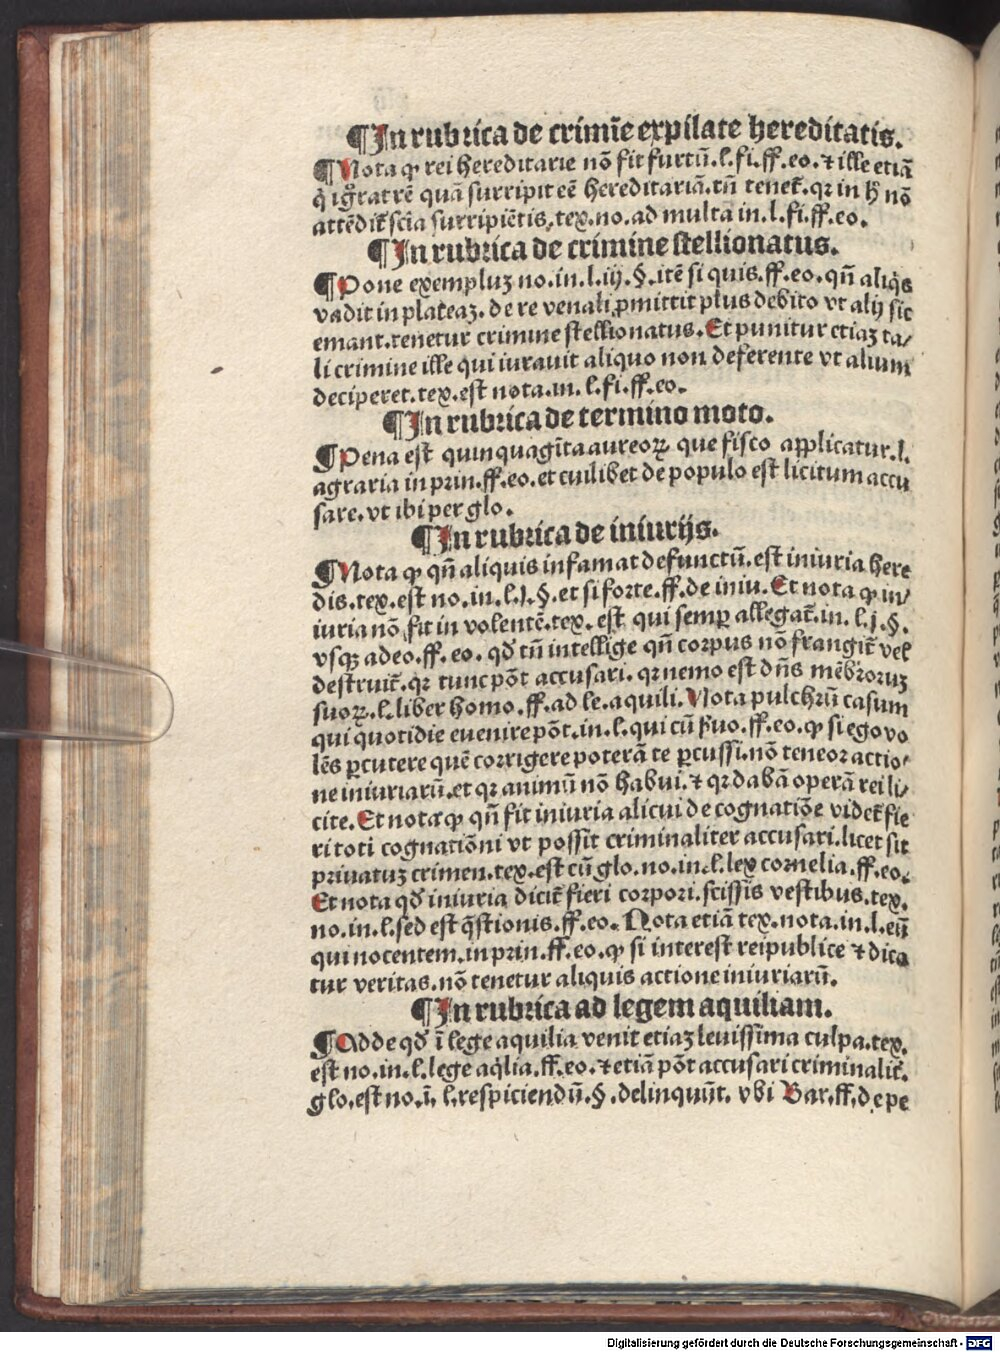 ¶In rubrica de crimīe expilate hereditatis.
¶Nota ꝙ rei hereditarie nō fit furtū.l.fi.ff.eo.⁊ ille etiā
q̇ igrat rē quā surripit eē hereditariā.tn̄ tenet̄.qꝛ in h̄ nō
attēdit̄ scīa surripiētis.tex.no.ad multa in.l.fi.ff.eo.
¶In rubrica de crimine stellionatus.
¶Pone exempluꝫ no.in.l.iij.§.itē si quis.ff.eo.qn̄ aliq̇s
vadit in plateaꝫ.de re venali ꝓmittit plus debito vt alij sic
emant.tenetur crimine stellionatus.Et punitur etiaꝫ ta/
li crimine ille qui iurauit aliquo non deferente vt alium
deciperet.tex.est nota.in.l.fi.ff.eo.
¶In rubrica de termino moto.
¶Pena est quinquagīta aureoꝝ que fisco applicatur.l.
agraria in prin.ff.eo.et cuilibet de populo est licitum accu
sare.vt ibi per glo.
¶In rubrica de iniurijs.
¶Nota ꝙ qn̄ aliquis infamat defunctū.est iniuria here
dis.tex.est no.in.l.j.§.et si forte.ff.de iniu.Et nota ꝙ in/
iuria nō fit in volentē.tex.est qui semꝑ allegat̄.in.l.j.§.
vsqꝫ adeo.ff.eo.qđ tn̄ intellige qn̄ corpus nō frangit̄ vel
destruit̄.qꝛ tunc pōt accusari.qꝛ nemo est dn̄s mēbroruꝫ
suoꝝ.l.liber homo.ff.ad le.aquili.Nota pulchrū casum
qui quotidie euenire pōt.in.l.qui cū ẜuo.ff.eo.ꝙ si ego vo
lēs ꝑcutere quē corrigere poterā te ꝑcussi.nō teneor actio/
ne iniuriarū.et qꝛ animū nō habui.⁊ qꝛ dabā operā rei li/
cite.Et nota ꝙ qn̄ fit iniuria alicui de cognatiōe videt̄ fie
ri toti cognatiōni vt possit criminaliter accusari.licet sit
priuatuꝫ crimen.tex.est cū glo.no.in.l.lex cornelia.ff.eo.
Et nota qđ iniuria dicit̄ fieri corpori.scissis vestibus.tex.
no.in.l.sed est q̄stionis.ff.eo.Nota etiā tex.nota.in.l.eū
qui nocentem.in prin.ff.eo.ꝙ si interest reipublice ⁊ dica
tur veritas.nō tenetur aliquis actione iniuriarū.
¶In rubrica ad legem aquiliam.
¶Adde qđ ī lege aquilia venit etiaꝫ leuissima culpa.tex.
est no.in.l.lege aq̇lia.ff.eo.⁊ etiā pōt accusari criminalit̄.
glo.est no.ī.l.respiciendū.§.delinquūt.vbi Bar.ff.de pe
Digitalisierung gefördert durch die Deutsche Forschungsgemeinschaft - DFG